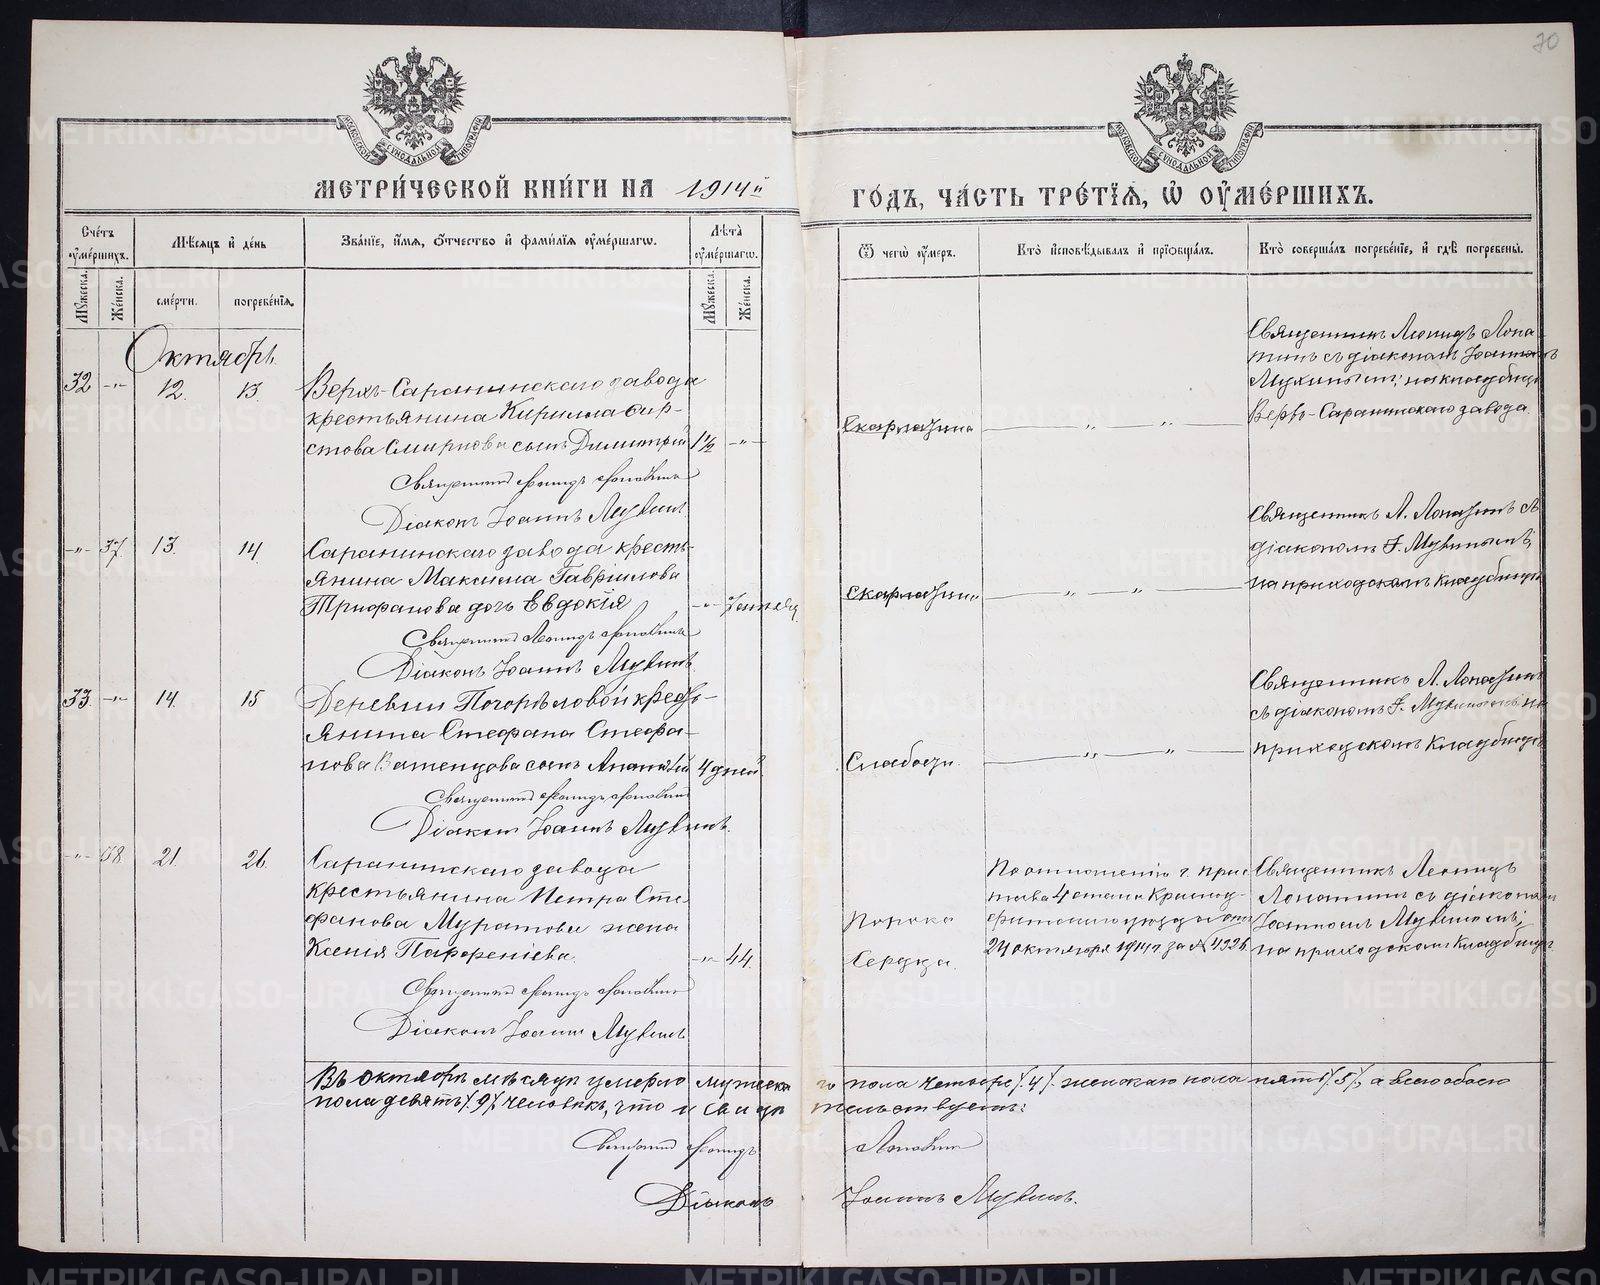 70
МЕТРИ́ЧЕСКОЙ КНИ́ГИ НА 1914й
ГО́ДЪ, ЧА́СТЬ ТРЕ́ТІѦ, Ѡ҆ ОУ҆МЕ́РШИХЪ.
Сче́тъ оу҆ме́ршихъ.
Мѣ́сяцъ и҆ де́нь
Зва́нїе, и҆́мѧ, ѻ҆́тчество и҆ фами́лїѧ оу҆ме́ршагѡ.
Лѣ́та оу҆ме́ршагѡ.
Ѿ чегѡ̀ оу҆́меръ.
Кто̀ и҆сповѣ́дывалъ и҆ прїѡбща́лъ.
Кто̀ соверша́лъ погребе́нїе, и҆ гдѣ̀ погребены̀.
Мꙋ́жеска.
Же́нска.
сме́рти.
погребе́нїѧ.
Мꙋ́жеска.
Же́нска.
Октябрь.
32 -"- 12. 13.
Верхъ-Саранинскаго завода
крестьянина Кирилла
стова Смирнова сынъ Димитрій 1½ -"-
Священникъ Леонидъ Лопатинъ
Діаконъ Іоаннъ Мухинъ
Скарлатина
Священникъ Леонидъ Лопа
тинъ съ діакономъ Іоанномъ
Мухинымъ; на кладбищѣ
Верхъ-Саранинскаго завода.
-"- 37. 13. 14.
Саранинскаго завода кресть-
янина Максима Гавріилова
Трифанова дочь Евдокія -"-
Священникъ Леонидъ Лопатинъ
Діаконъ Іоаннъ Мухинъ
Скарлатина
Священникъ Л. Лопатинъ съ
діакономъ І. Мухинымъ;
на приходскомъ кладбищѣ
33. -"- 14. 15
Деревни Погорѣловой кресть-
янина Стефана Стефа-
нова сынъ 4 дней
Священникъ Леонидъ Лопатинъ
Діаконъ Іоаннъ Мухинъ.
Слабости.
Священникъ Л. Лопатинъ
съ діакономъ І. Мухинымъ; на
приходскомъ кладбищѣ
-"- 38. 21. 26.
Саранинскаго завода
крестьянина Петра Сте
фанова Муратова жена
Ксенія Парфеніева. -"- 44.
Священникъ Леонидъ Лопатинъ
Діаконъ Іоаннъ Мухинъ
Порока
Сердца.
По отношенію г. прис
тава 4 стана Красно
уфимскаго уѣзда отъ
24 октября 1914 г. за №
Священникъ Леонидъ
Лопатинъ съ діакономъ
Іоанномъ Мухинымъ;
на приходскомъ кладбищѣ
Въ октябрѣ мѣсяцѣ умерло мужеска го пола четыре /4/. женскаго пола пять /5/, а всего обоего
пола девять /9/. человѣкъ, что и свидѣ тельствуемъ:
Священникъ Леонидъ Лопатинъ
Діаконъ Іоаннъ Мухинъ.
METRIKI.GASO-URAL.RU